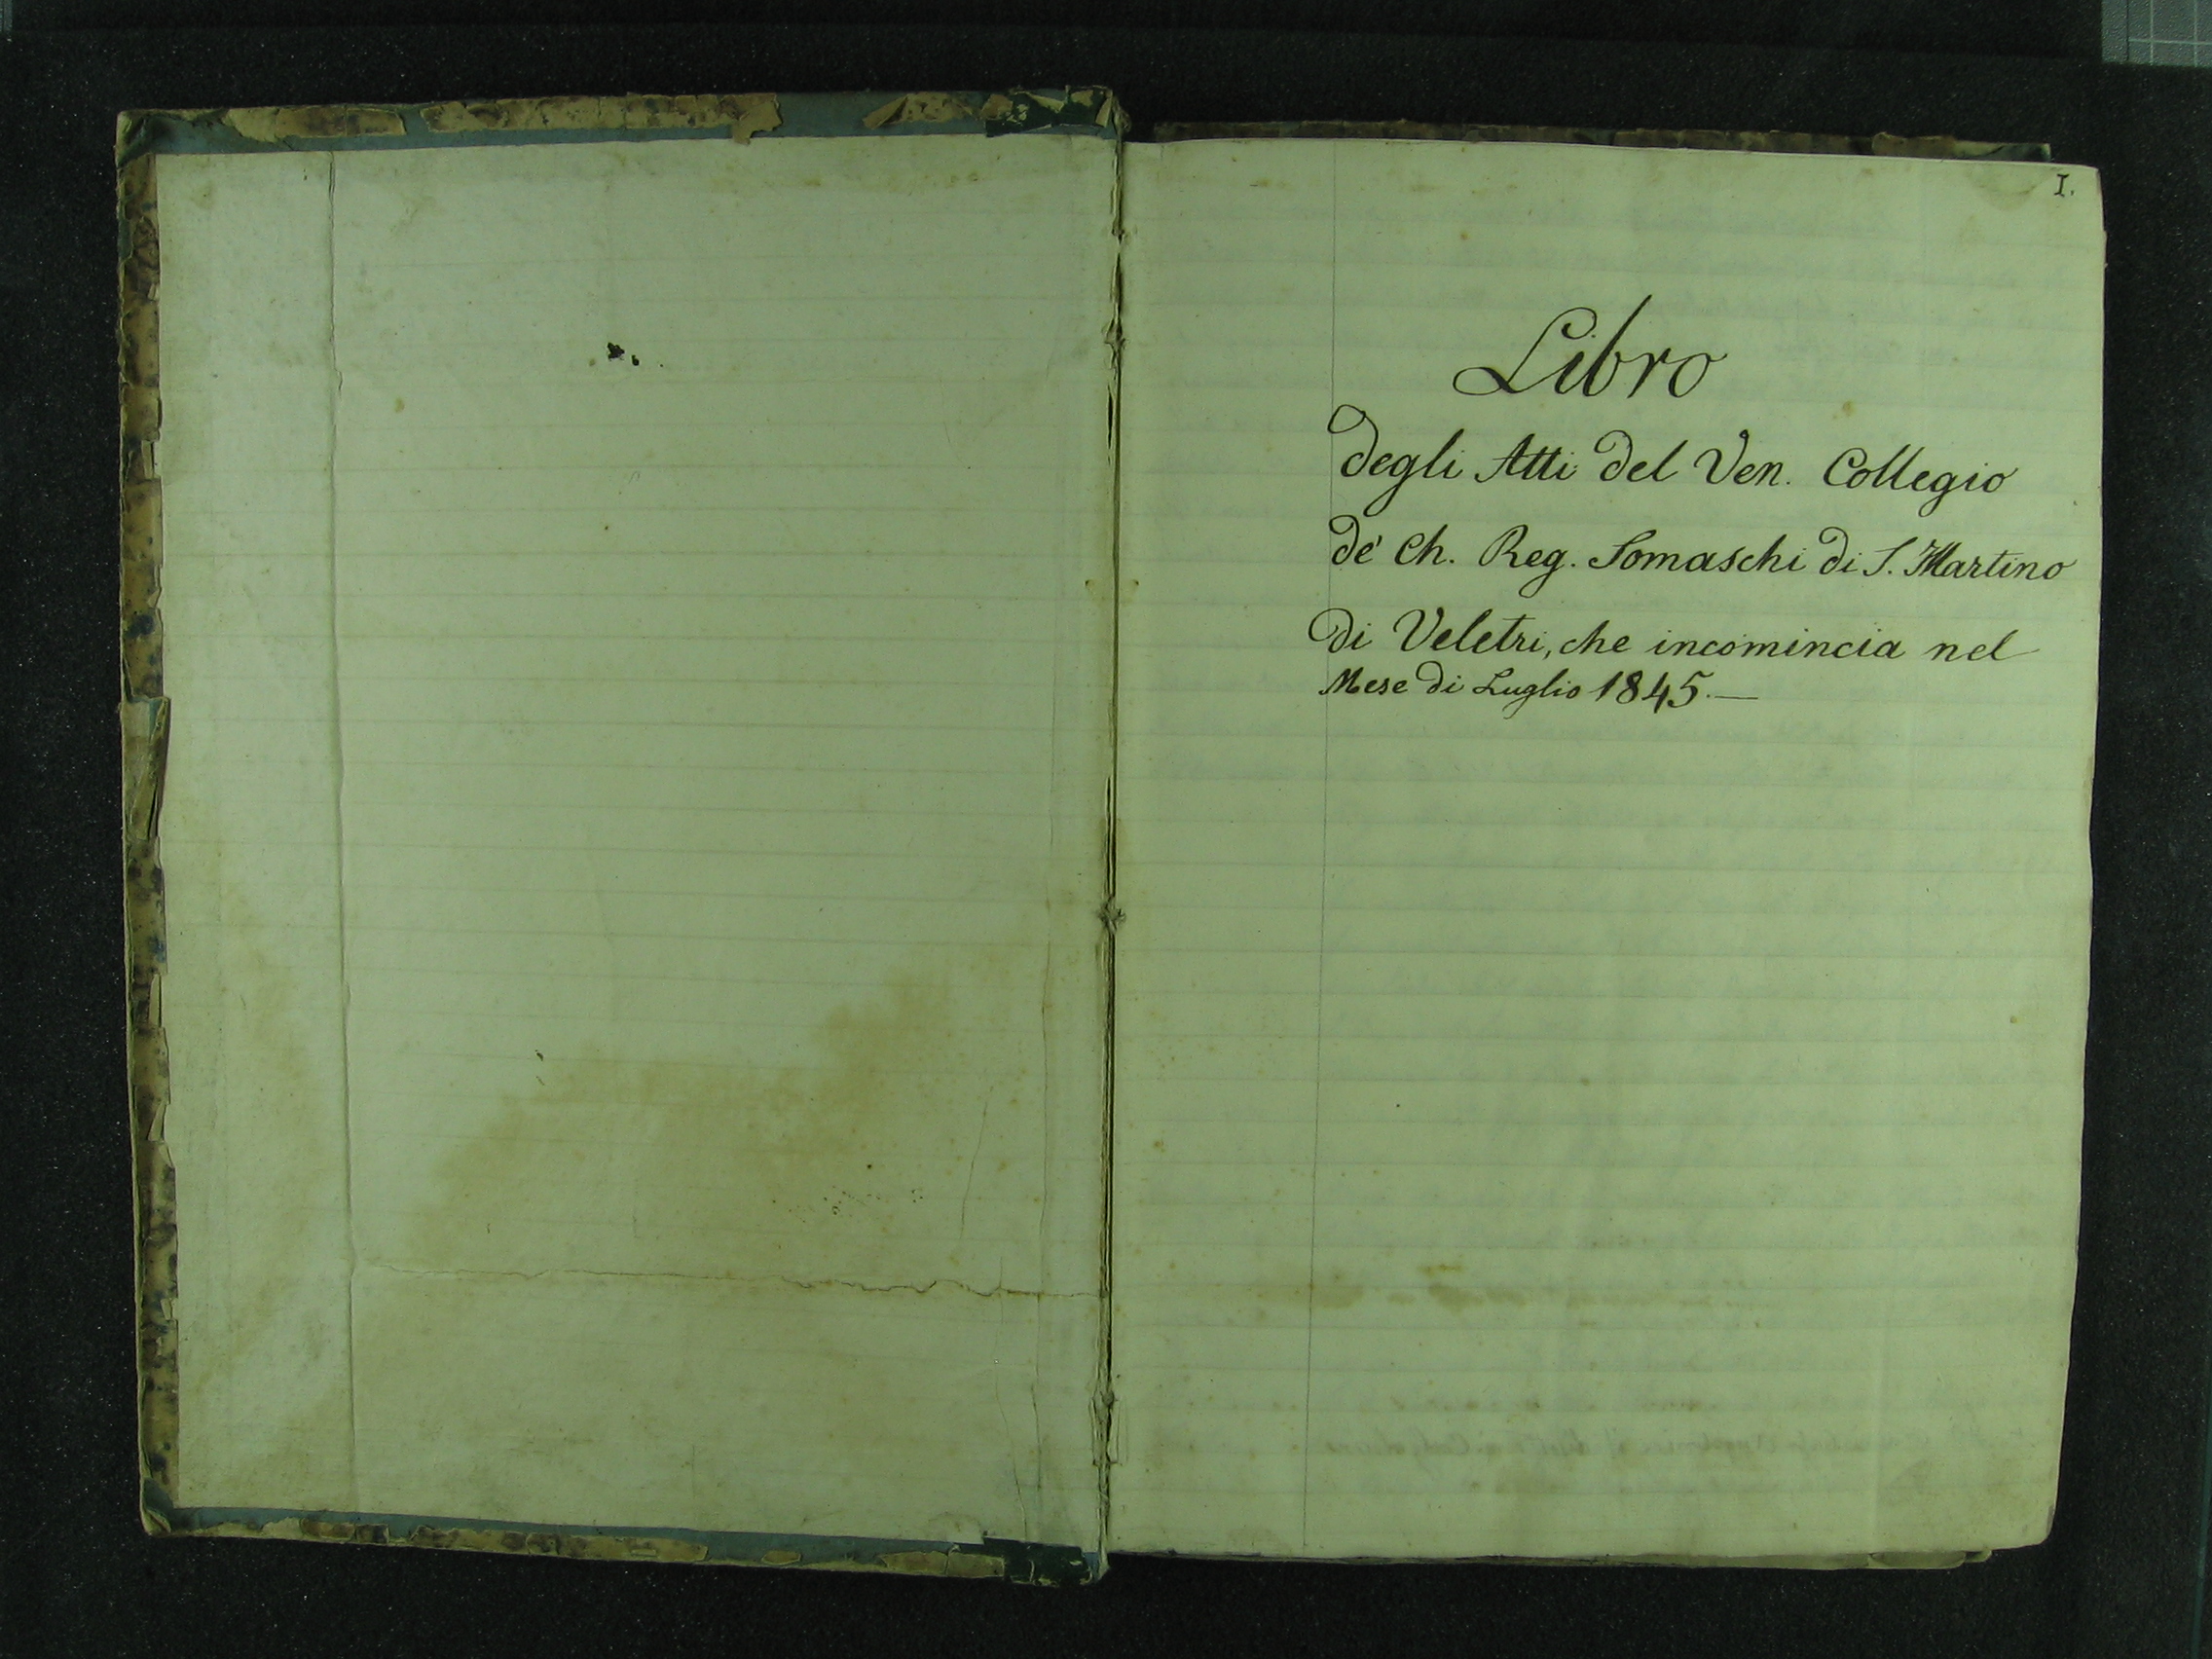 I.
Libro
degli Atti del Ven. Collegio
de' Ch. Reg. Somaschi di S. Martino
di Veletri, che incomincia nel
Mese di Luglio 1845.—